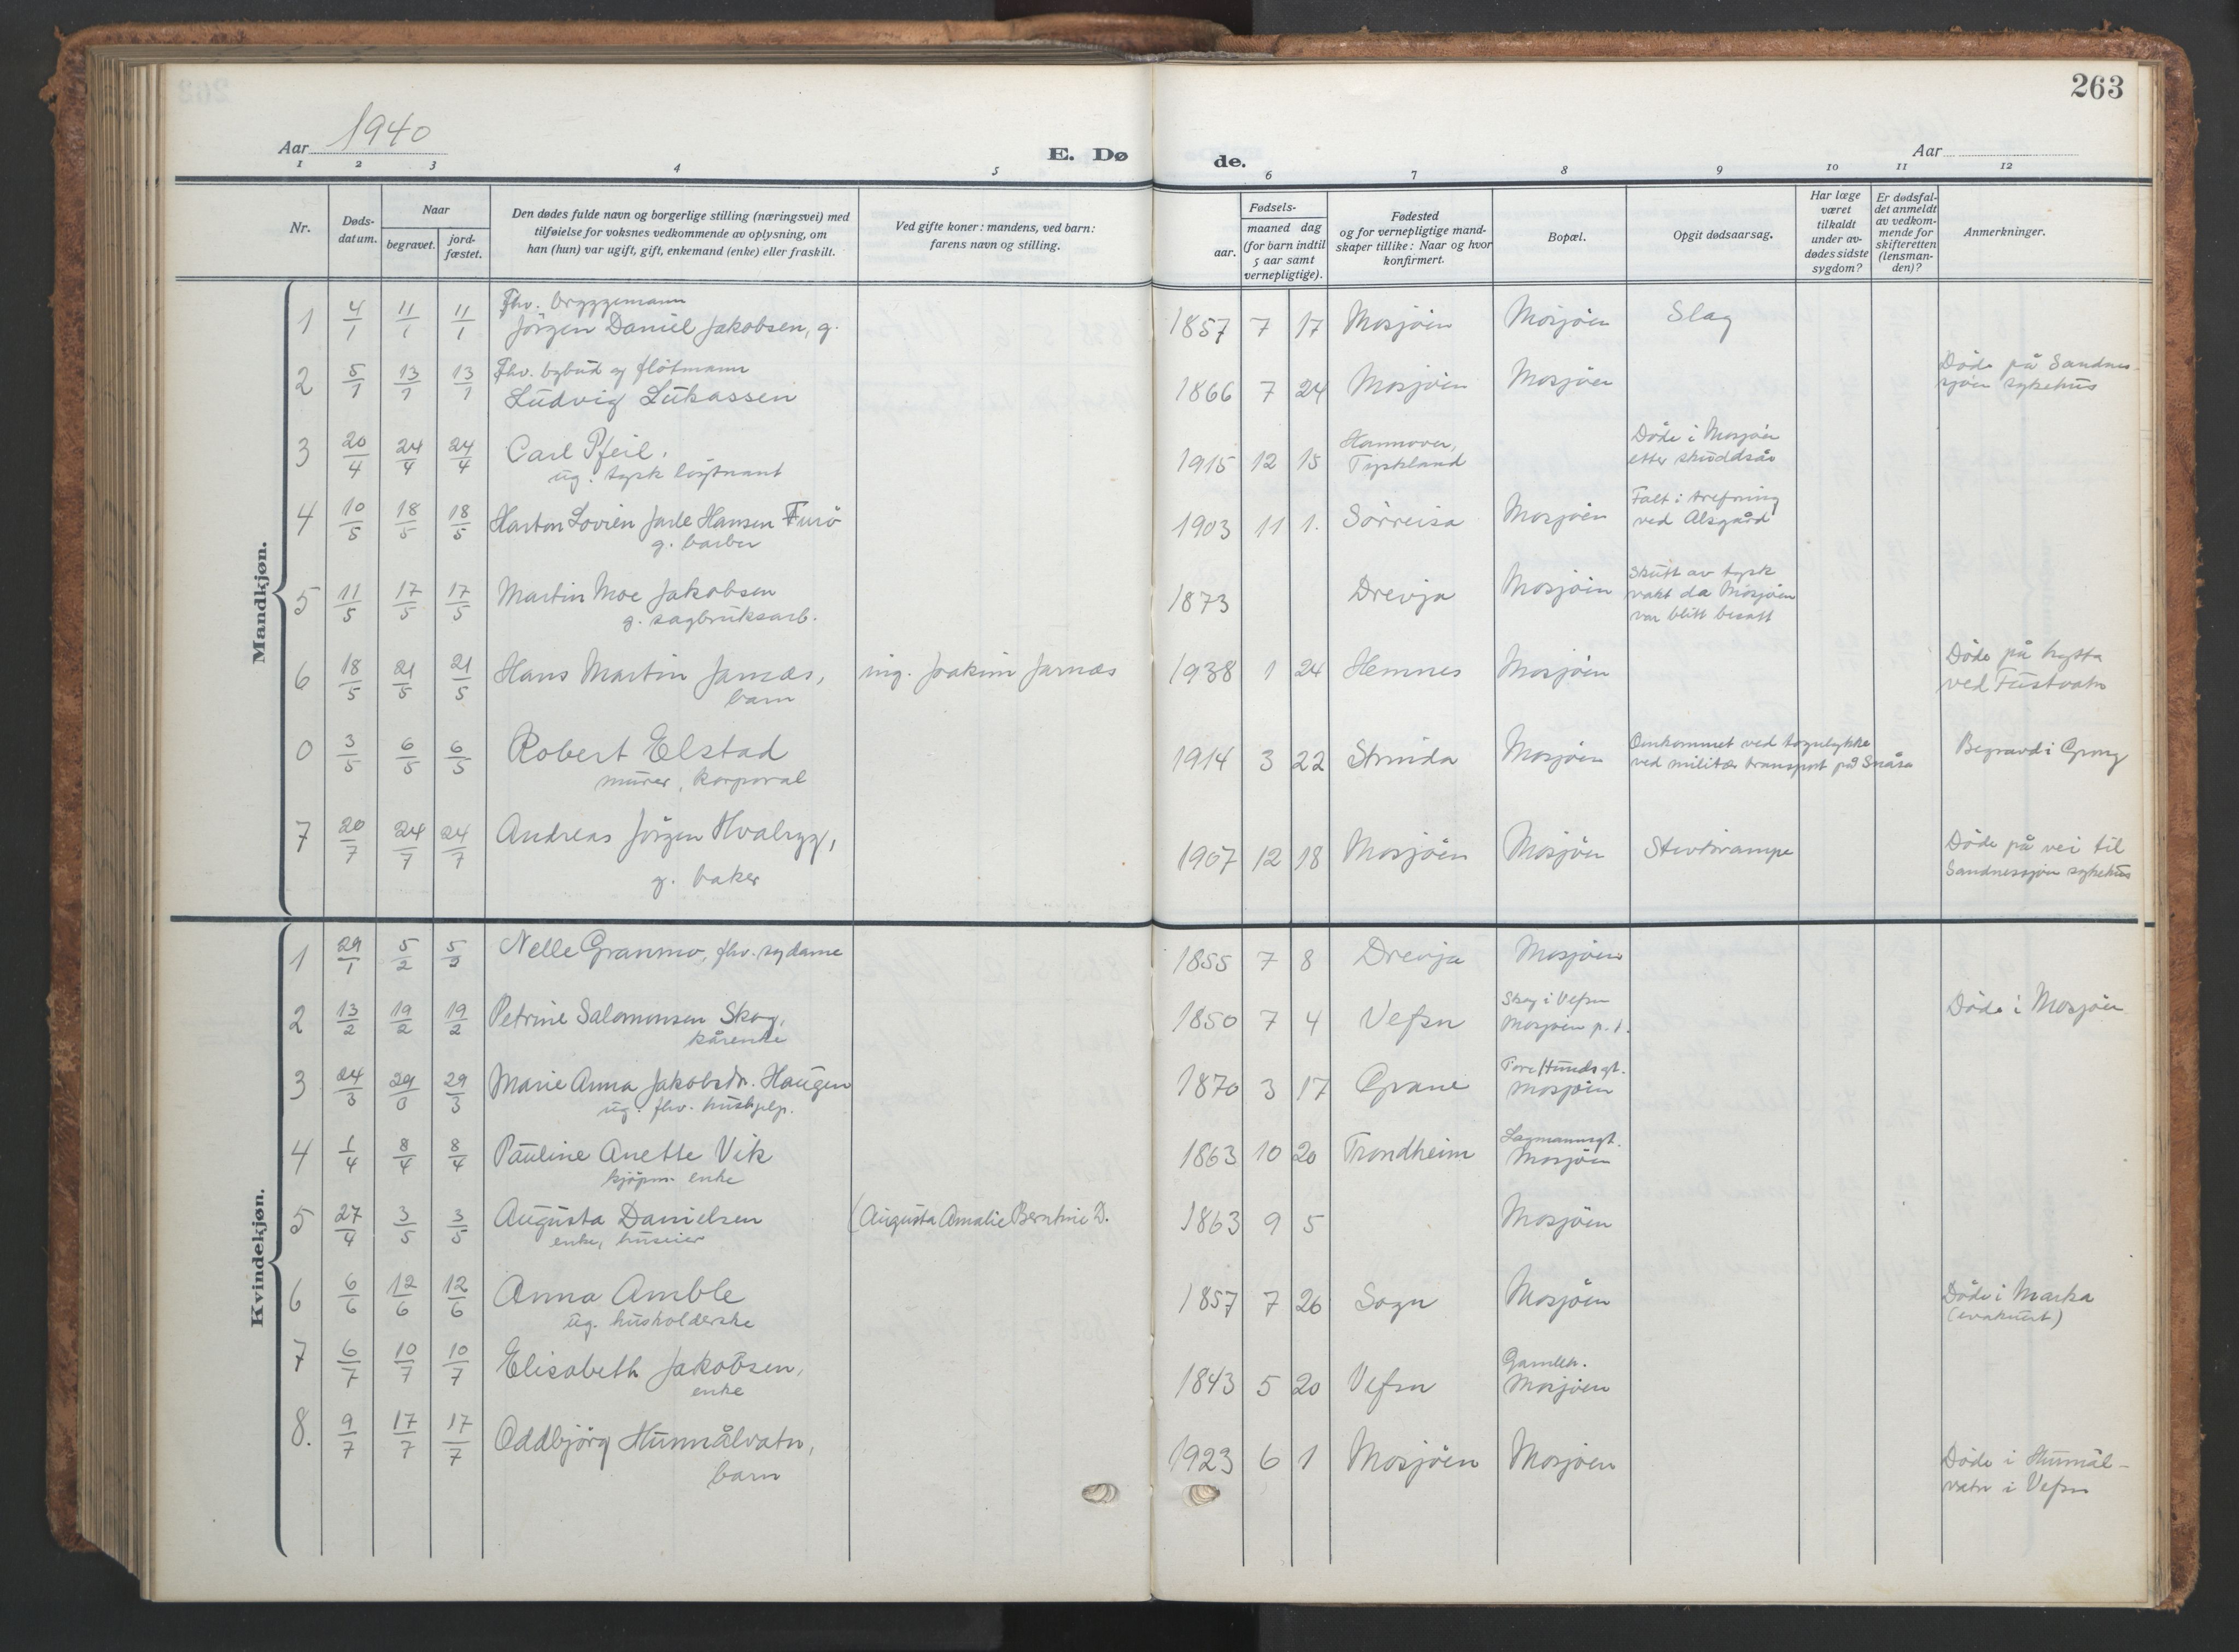 263
Aar 1940
E. Dø
de.
Aar
1 2 3 4 5 6 7 8 9 10 11 12
Nr.
Døds-
datum.
Naar
begravet.
jord-
fæstet.
Den dødes fulde navn og borgerlige stilling (næringsvei) med
tilføielse for voksnes vedkommende av oplysning, om
han (hun) var ugift, gift, enkemand (enke) eller fraskilt.
Ved gifte koner: mandens, ved barn:
farens navn og stilling.
Fødsels-
aar.
maaned dag
(for barn indtil
5 aar samt
vernepligtige).
Fødested
og for vernepligtige mand-
skaper tillike: Naar og hvor
konfirmert.
Bopæl.
Opgit dødsaarsag.
Har læge
været
tilkaldt
under av-
dødes sidste
sygdom?
Er dødsfal-
det anmeldt
av vedkom-
mende for
skifteretten
(lensman-
den)?
Anmerkninger.
Mandkjøn.
Fhv. bryggemann
1 4/1 11/1 11/1 Jörgen Daniel Jakobsen, g. 1857 7 17 Mosjöen Mosjöen Slag
Fhv. bybud og flötmann
2 5/1 13/1 13/1 Ludvig Lukassen 1866 7 24 Mosjöen Mosjöen Döde på Sandnes-
sjöen sykehus
3 20/4 24/4 24/4 Carl Pfeil. 1915 12 15 Hannover, Döde i Mosjöen
ug. tysk löytnant Tyskland etter skuddsår
4 10/5 18/5 18/5 Harton Lovien Jarle Hansen Furö 1903 11 1. Sörreisa Mosjöen Falt i trefning
g. barber ved Alsgård
5 11/5 17/5 17/5 Martin Moe Jakobsen 1873 Drevja Mosjöen Skutt av tysk
g. sagbruksarb. vakt da Mosjöen
var blitt besatt
6 18/5 21/5 21/5 Hans Martin Jarnæs, ing. Joakim Jarnæs 1938 1 24 Hemnes Mosjöen Döde på hytta
barn ved Fustvatn
0 3/5 6/5 6/5 Robert Elstad 1914 3 22 Strinda Mosjöen Omkommet ved togulykke Begravd i Grong
murer, korporal ved militær transport på Snåsa
7 20/7 24/7 24/7 Andreas Jörgen Hvalryg, 1907 12 18 Mosjöen Mosjöen Stivkrampe Döde på vei til
g. baker Sandnessjöen sykehus
Kvindekjøn.
1 29/1 5/2 5/2 Nelle Granmo, fhv. sydame 1855 7 8 Drevja Mosjöen
2 13/2 19/2 19/2 Petrine Salomonsen Skog, 1850 7 4 Vefsn Skog i Vefsn Döde i Mosjöen
kårenke Mosjöen p.t.
3 24/3 29/3 29/3 Marie Anna Jakobsdr. Haugen 1870 3 17 Grane Tore Hundsgt.
ug. fhv. hushjelp. Mosjöen
4 1/4 8/4 8/4 Pauline Anette Vik 1863 10 20 Trondheim Lagmannsgt.
kjöpm. enke Mosjöen
5 27/4 3/5 3/5 Augusta Danielsen (Augusta Amalie Berntine D. 1863 9 5 Mosjöen
enke, huseier
6 6/6 12/6 12/6 Anna Amble 1857 7 26 Sogn Mosjöen Döde i Marka
ug. husholderske (evakuert)
7 6/7 10/7 10/7 Elisabeth Jakobsen, 1843 5 20 Vefsn Gamleh.
enke Mosjöen
8. 9/7 17/7 17/7 Oddbjörg Hunnålvatn, 1923 6 1 Mosjöen Mosjöen Döde i Hunnål-
barn vatn i Vefsn